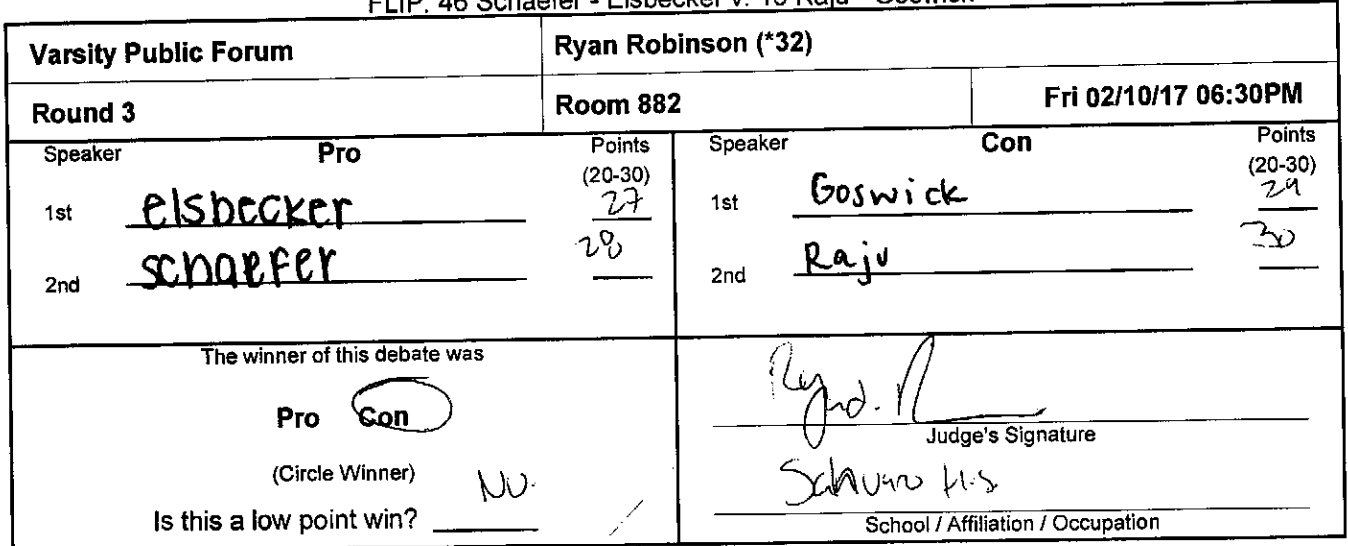 FLIP: 46 Schaefer - Elsbecker v.
Varsity Public Forum
Ryan Robinson (*32)
Round 3
Room 882
Fri 02/10/17 06:30PM
Speaker Pro Points
(20-30)
1st elsbecker 27
2nd schaefer 28
Speaker Con Points
(20-30)
1st Goswick 29
2nd Raju 30
The winner of this debate was
Pro Con
(Circle Winner)
Is this a low point win? No.
Judge's Signature
H.S
School / Affiliation / Occupation